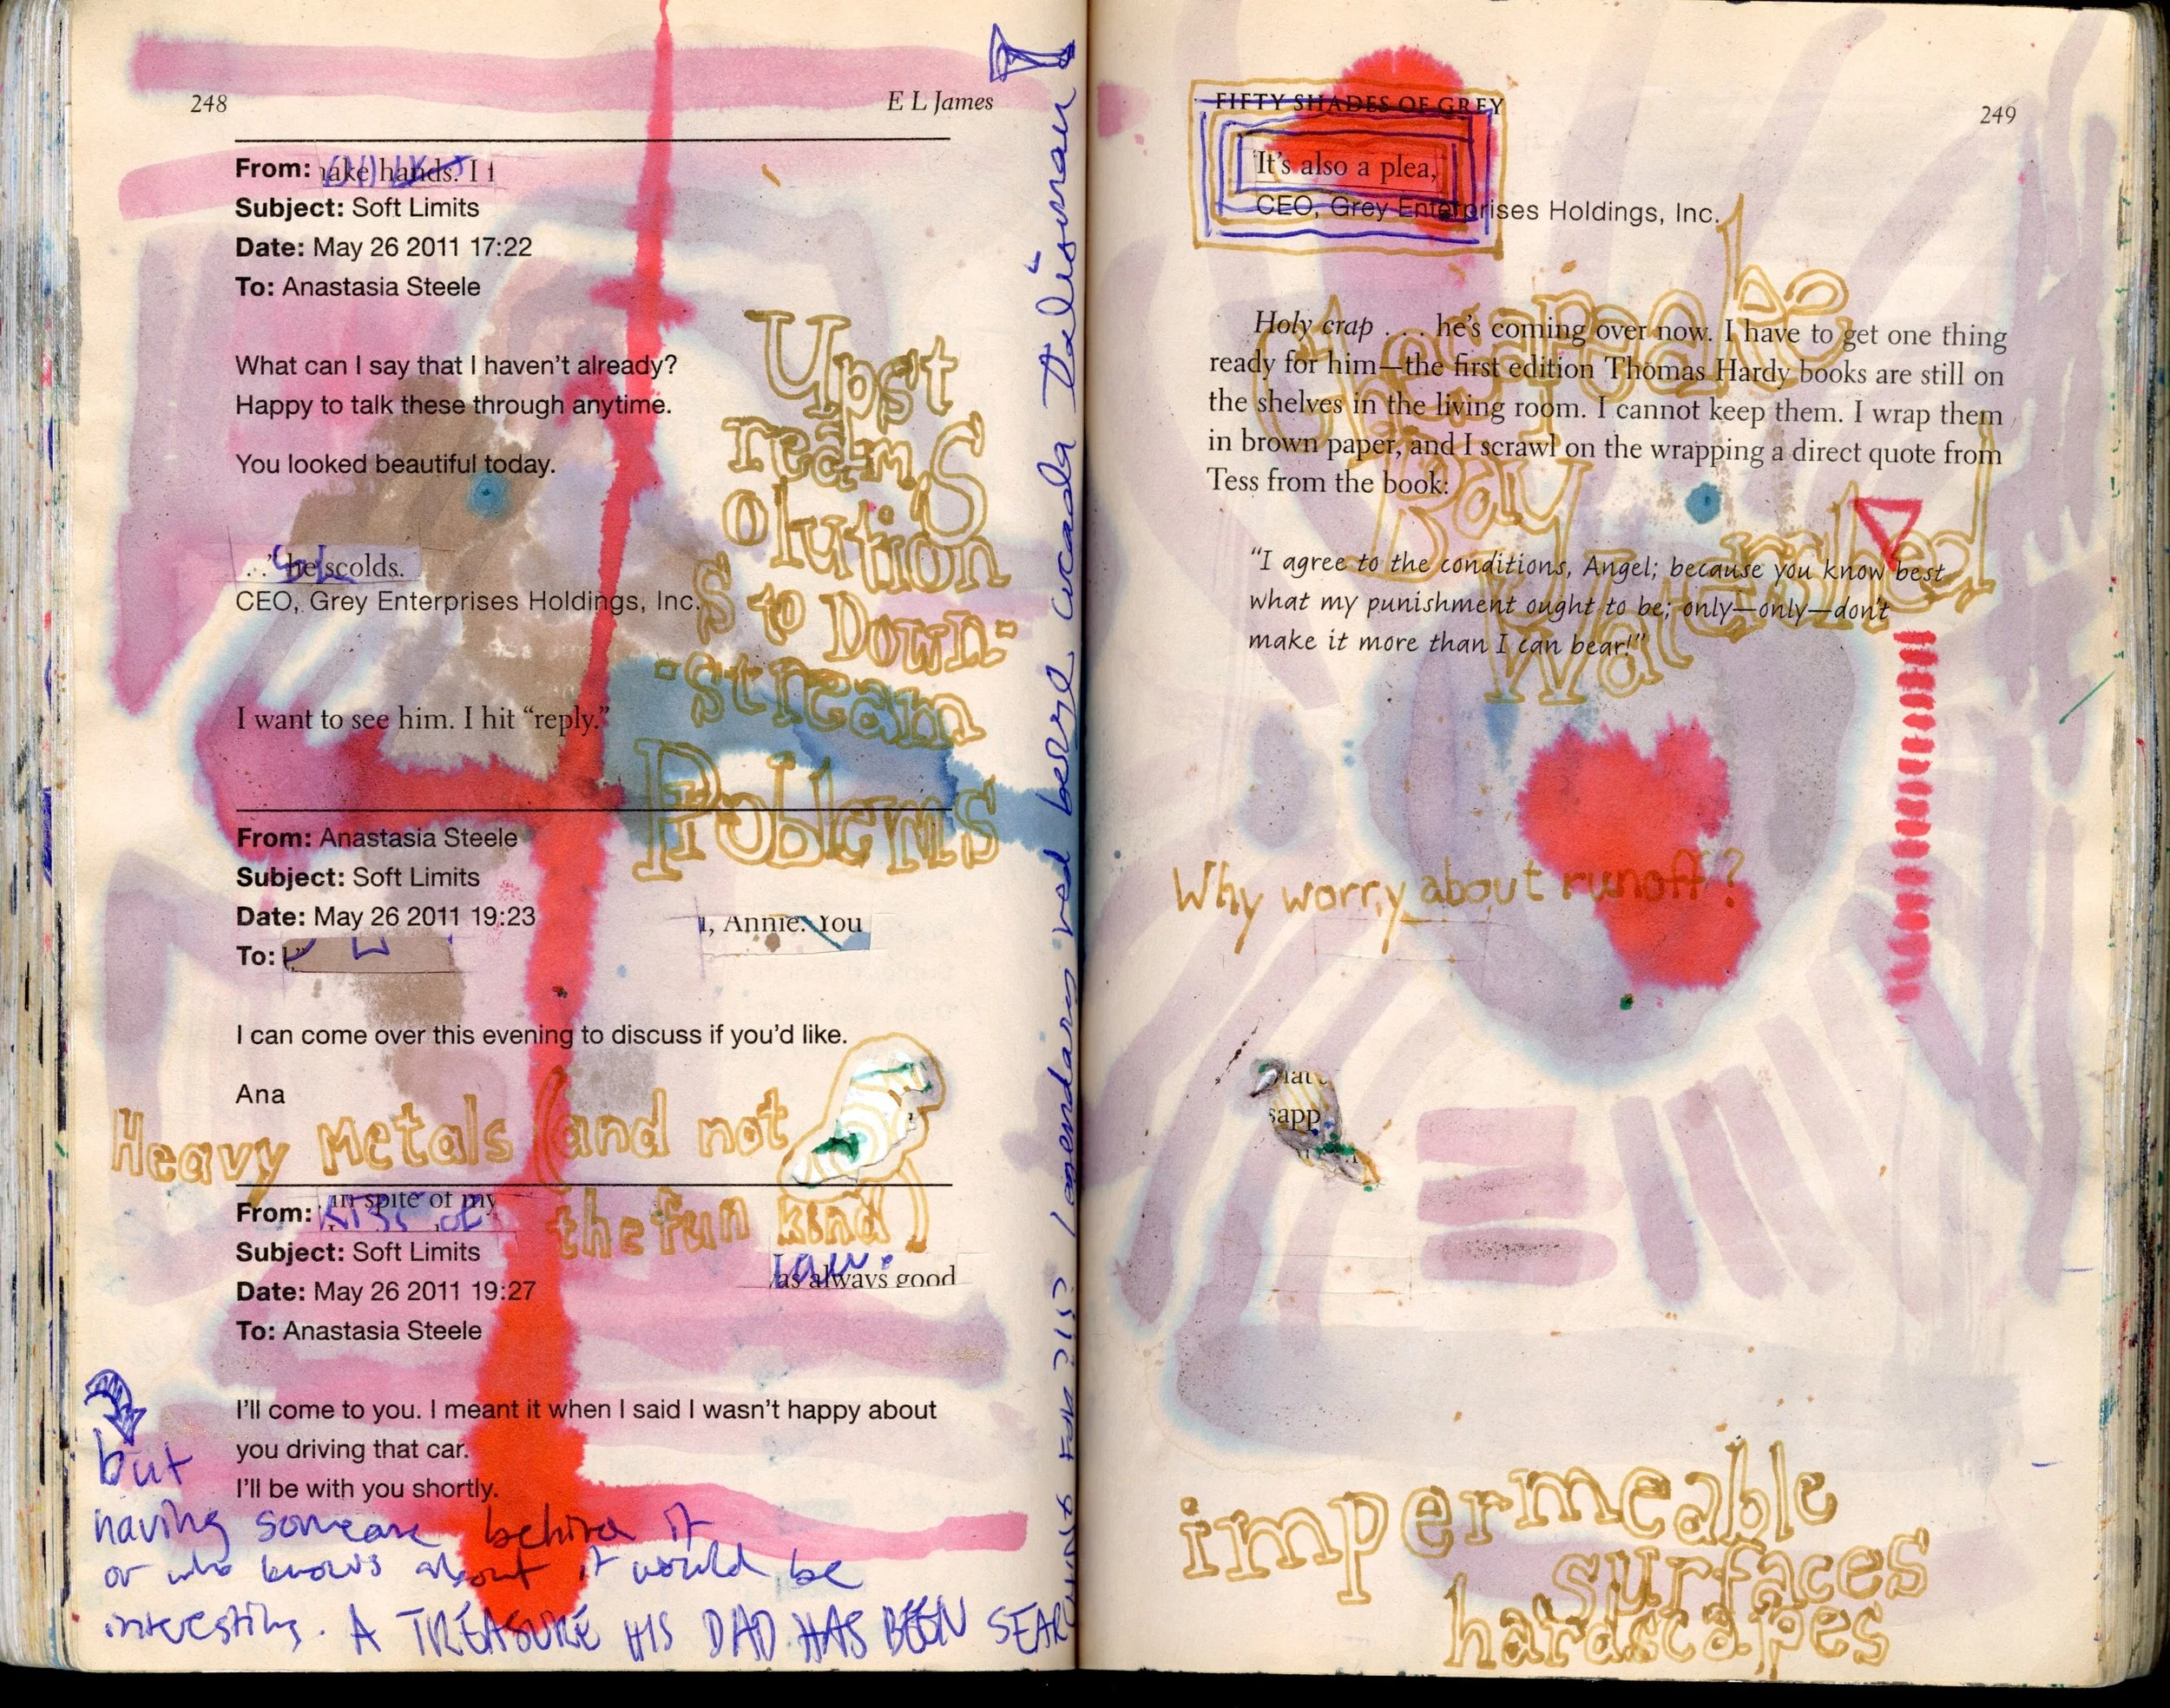 248
E L James
From: ake hands. I
Subject: Soft Limits
Date: May 26 2011 17:22
To: Anastasia Steele
What can I say that I haven't already?
Happy to talk these through anytime.
You looked beautiful today.
. ." he scolds.
CEO, Grey Enterprises Holdings, Inc.
I want to see him. I hit "reply."
Upst
ream S
olution
s to Down-
-stream
Problems
From: Anastasia Steele
Subject: Soft Limits
Date: May 26 2011 19:23
, Annie. You
To:
I can come over this evening to discuss if you'd like.
Ana
Heavy Metals (and not
the fun kind)
From: in spite of my
as always good
Subject: Soft Limits
Date: May 26 2011 19:27
To: Anastasia Steele
I'll come to you. I meant it when I said I wasn't happy about
you driving that car.
I'll be with you shortly.
but
having someone behind it
or who knows about it would be
interesting. A TREASURE HIS DAD HAS BEEN SEAR
FIFTY SHADES OF GREY
249
It's also a plea,
CEO, Grey Enterprises Holdings, Inc.
Holy crap . . . he's coming over now. I have to get one thing
ready for him—the first edition Thomas Hardy books are still on
the shelves in the living room. I cannot keep them. I wrap them
in brown paper, and I scrawl on the wrapping a direct quote from
Tess from the book:
"I agree to the conditions, Angel; because you know best
what my punishment ought to be; only—only—don't
make it more than I can bear!"
the
Chesapeake
Bay
Watershed
Why worry about runoff?
sapp
impermeable
surfaces
hardscapes